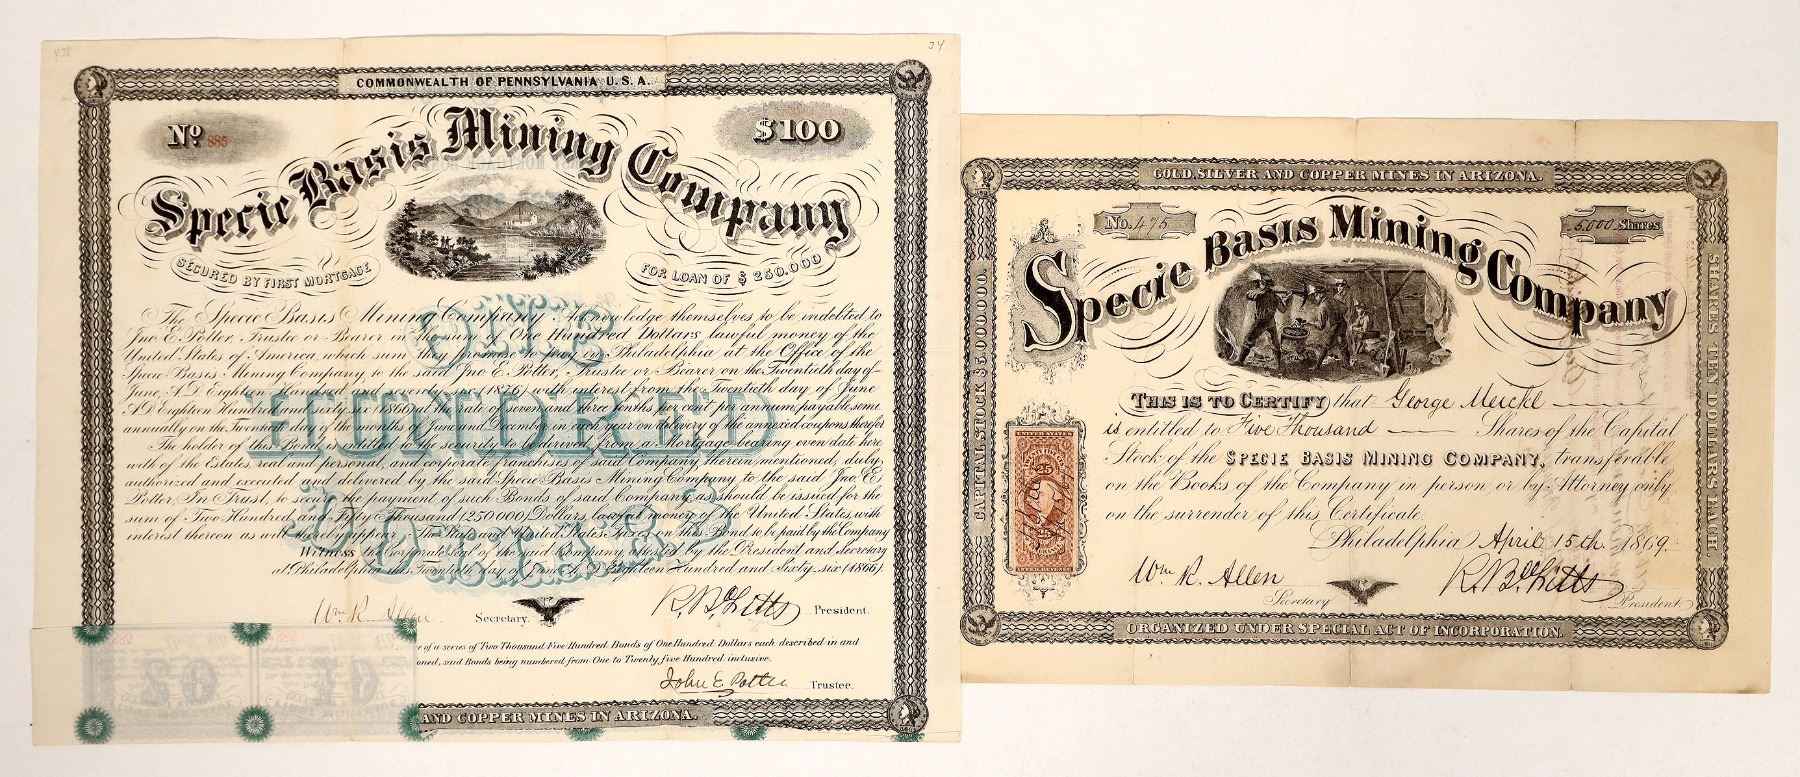 438
34
COMMONWEALTH OF PENNSYLVANIA U.S.A.
No. 885
$100
Specie Basis Mining Company
SECURED BY FIRST MORTGAGE
FOR LOAN OF $250.000
ONE
HUNDRED
DOLLARS
The Specie Basis Mining Company Acknowledge themselves to be indebted to
Jno E. Potter, Trustee or Bearer in the sum of One Hundred Dollars lawful money of the
United States of America, which sum they promise to pay in Philadelphia at the Office of the
Specie Basis Mining Company to the said Jno E. Potter, Trustee or Bearer on the Twentieth day of
June A.D. Eighteen Hundred and seventy six (1876) with interest from the Twentieth day of June
A.D. Eighteen Hundred and sixty six (1866) at the rate of seven and three tenths per cent per annum, payable semi
annually on the Twentieth day of the months of June and December in each year on delivery of the annexed coupons therefor
The holder of this Bond is entitled to the security to be derived from a Mortgage bearing even date here
with of the Estates, real and personal, and corporate franchises of said Company, therein mentioned, duly
authorized and executed and delivered by the said Specie Basis Mining Company to the said Jno E.
Potter, In Trust, to secure the payment of such Bonds of said Company as should be issued for the
sum of Two Hundred and Fifty Thousand (250 000) Dollars, lawful money of the United States, with
interest thereon as will thereby appear. The State and United States Taxes on this Bond to be paid by the Company
Witness the Corporate seal of the said Company attested by the President and Secretary
at Philadelphia this Twentieth day of June A.D. Eighteen Hundred and Sixty six (1866).
Wm R. Allen Secretary. R. B. Whitts President.
e of a series of Two Thousand Five Hundred Bonds of One Hundred Dollars each described in and
oned, said Bonds being numbered from One to Twenty five Hundred inclusive.
John E. Potter Trustee.
885
885
AND COPPER MINES IN ARIZONA.
GOLD, SILVER AND COPPER MINES IN ARIZONA.
No. 475
5,000 Shares
Specie Basis Mining Company
CAPITAL STOCK $5,000,000.
SHARES TEN DOLLARS EACH.
THIS IS TO CERTIFY that George Meickl
is entitled to Five Thousand Shares of the Capital
Stock of the SPECIE BASIS MINING COMPANY, transferable
on the Books of the Company in person or by Attorney only
on the surrender of this Certificate.
25
25
Philadelphia April 15th 1869.
Wm R. Allen R. B. Whitts
Secretary President
ORGANIZED UNDER SPECIAL ACT OF INCORPORATION.